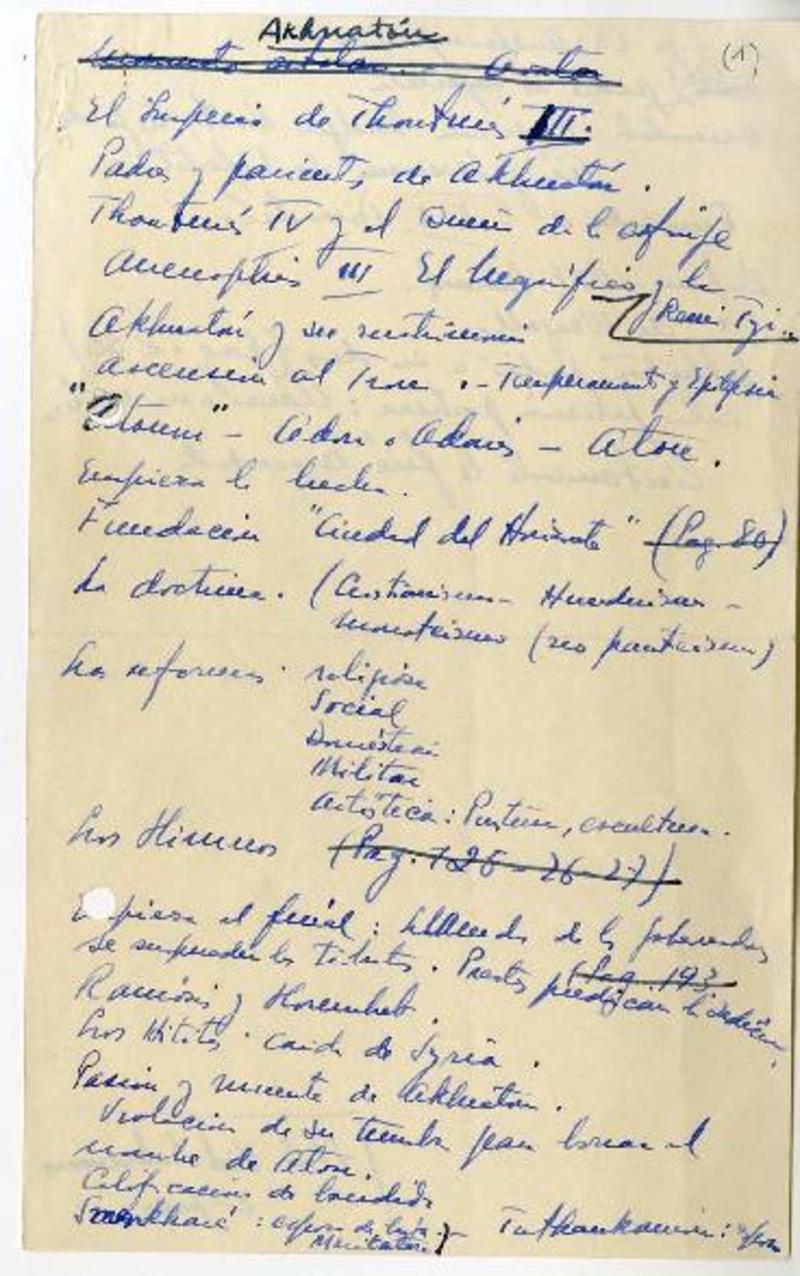 Akhnatón
(1)
El Imperio de Thoutmés III.
Padres y parientes de Akhnatón.
Thoutmés IV y el Sueño de la esfinje
Amenophis III El Magnífico y la
Reina Tyi.
Akhnatón y su matrimonio
Ascensión al Trono. - Temperamento y Epilepsia
"Atoum" - Adon o Adonis - Aton.
Empieza la lucha.
Fundación "Ciudad del Horizonte" (Pag. 80)
La doctrina. (Cristianismo - Hinduismo -
monoteismo (no panteismo)
Las reformas. religiosa
Social
Doméstica
Militar
Artística: Pintura, escultura.
Los Himnos (Pag. 125-26-27)
Empieza el final: de los gobernadores
se suspenden los tributos. Prestes predican la sedición.
(Pag. 193
Ramósis y Horemheb.
Los Hititas. caida de Syria.
Pasión y muerte de Akhnatón.
Violación de su tumba para borrar el
nombre de Aton.
Calificación de bandido
Smenkharé : esposo de la hija
Meritaton. y Tuthankamón: esposo